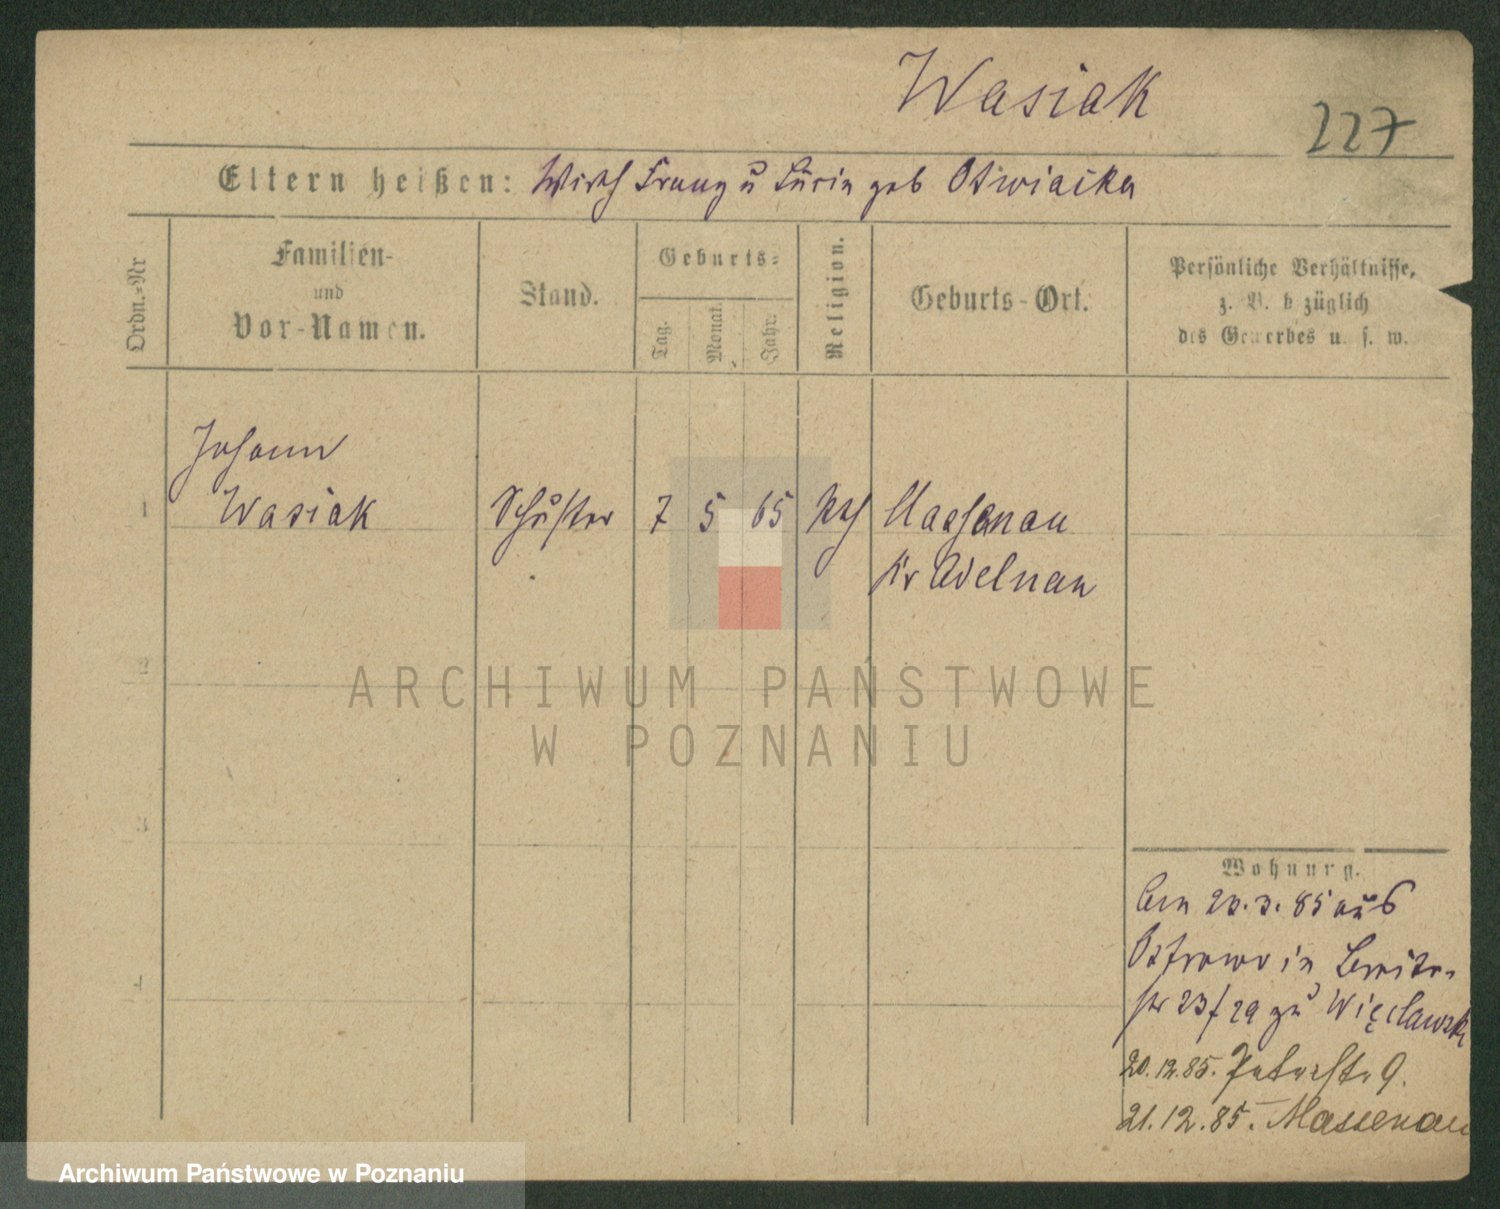 Wasiak
227
Eltern heißen: Wirth Franz u Lucia geb Otwiaska
Ordn.-Nr
Familien-
und
Vor-Namen.
Stand.
Geburts-
Tag.
Monat.
Jahr.
Religion.
Geburts-Ort.
Persönliche Verhältnisse,
z. B. bezüglich
des Gewerbes u. s. w.
1
Johann
Wasiak
Schuster
7
5
65
kth
Massenau
Kr Adelnau
2
3
4
Wohnung.
Am 20.3.85 aus
Ostrowo in
str 23/29 zu Więcławski
20.12.85. 9.
21.12.85. Massenau
ARCHIWUM PAŃSTWOWE
W POZNANIU
Archiwum Państwowe w Poznaniu